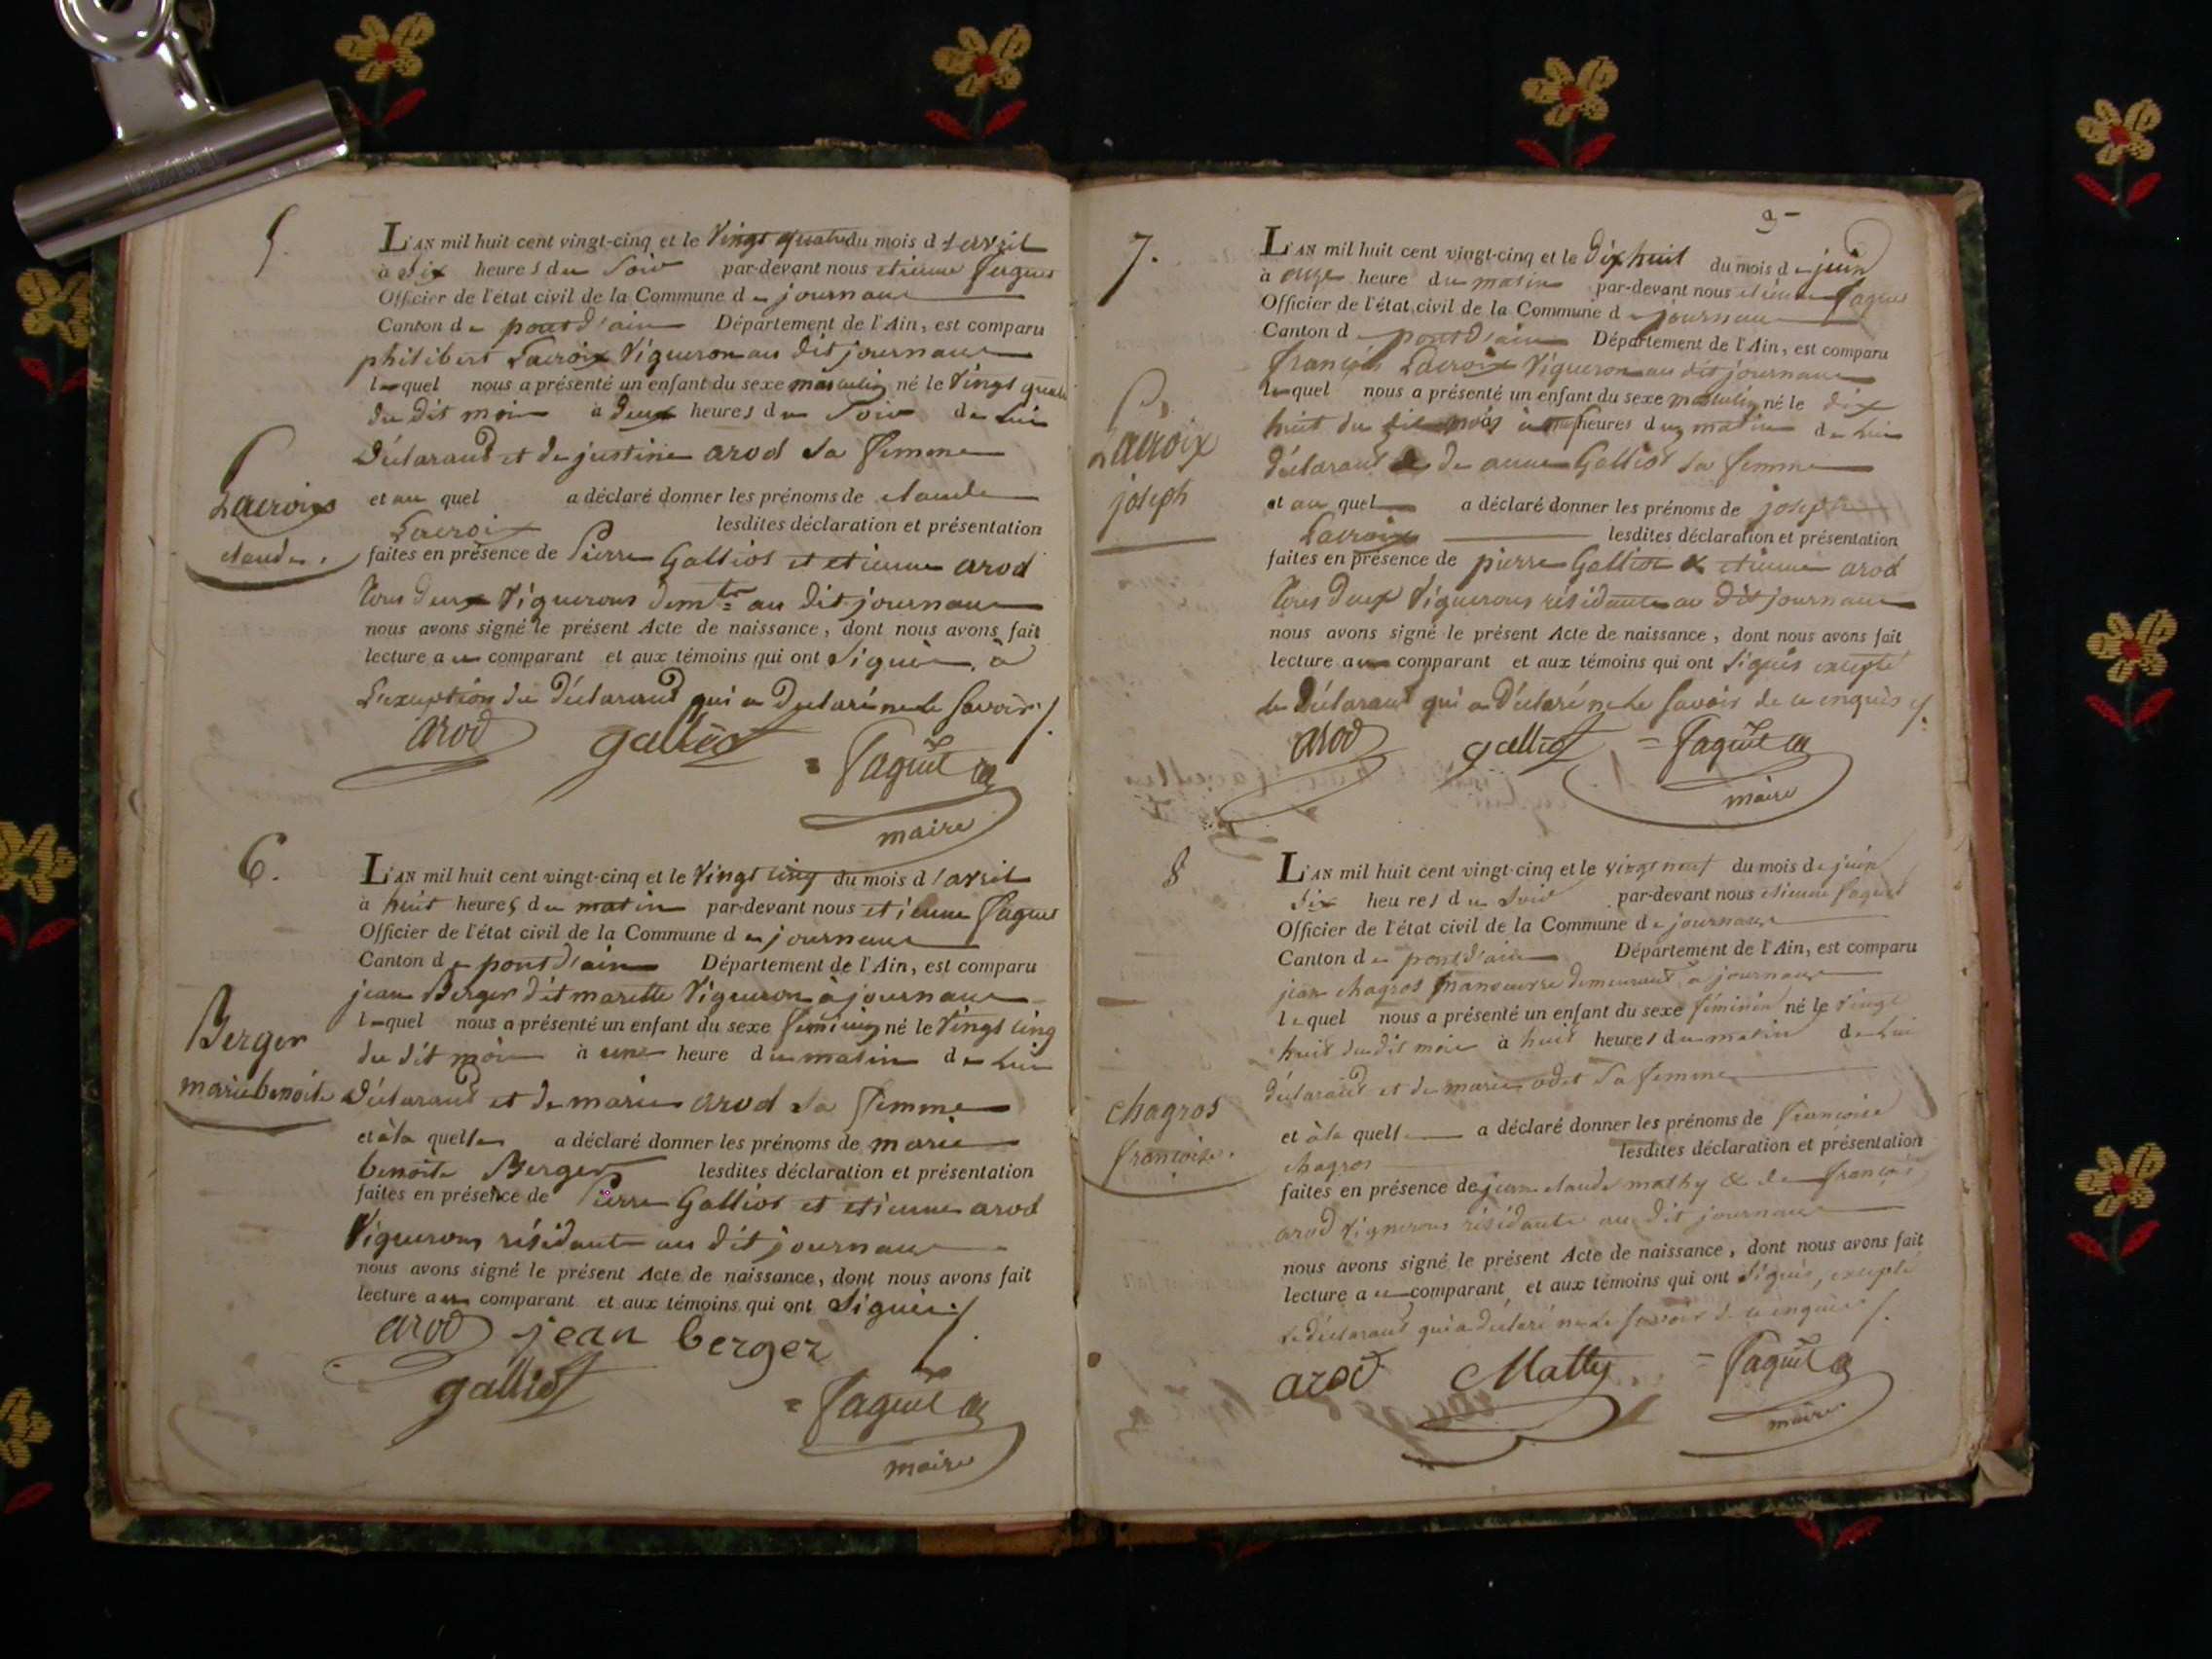 5.
L'AN mil huit cent vingt-cinq et le vingt quatre du mois d'avril
à six heures du soir par-devant nous etienne faguet
Officier de l'état civil de la Commune de journans
Canton de pont d'ain Département de l'Ain, est comparu
philibert Lacroix vigneron au dit journans
lequel nous a présenté un enfant du sexe masculin né le vingt quatre
du dit mois à deux heures du soir de lui
déclarant et de justine arod sa femme
Lacroix
claude.
et au quel a déclaré donner les prénoms de claude
Lacroix lesdites déclaration et présentation
faites en présence de Pierre Galliot et etienne arod
tous deux vignerons demts au dit journans
nous avons signé le présent Acte de naissance, dont nous avons fait
lecture au comparant et aux témoins qui ont signés, à
l'exception du déclarant qui a déclaré ne le savoir /.
arod galliot = faguet
maire
6.
L'AN mil huit cent vingt-cinq et le vingt cinq du mois d'avril
à huit heures du matin par-devant nous etienne faguet
Officier de l'état civil de la Commune de journans
Canton de pont d'ain Département de l'Ain, est comparu
jean Berger dit mariette vigneron à journans
lequel nous a présenté un enfant du sexe féminin né le vingt cinq
du dit mois à une heure du matin de lui
Berger
marie benoite
déclarant et de marie arod sa femme
et à la quelle a déclaré donner les prénoms de marie
benoite Berger lesdites déclaration et présentation
faites en présence de Pierre Galliot et etienne arod
vignerons résidants au dit journans
nous avons signé le présent Acte de naissance, dont nous avons fait
lecture au comparant et aux témoins qui ont signés /.
arod jean berger
galliot = faguet
maire
7.
L'AN mil huit cent vingt-cinq et le dix huit du mois de juin
à onze heure du matin par-devant nous etienne faguet
Officier de l'état civil de la Commune de journans
Canton de pont d'ain Département de l'Ain, est comparu
françois Lacroix vigneron au dit journans
lequel nous a présenté un enfant du sexe masculin né le dix
huit du dit mois à heures du matin de lui
Lacroix
joseph
déclarant de anne Galliot sa femme
et au quel a déclaré donner les prénoms de joseph
Lacroix lesdites déclaration et présentation
faites en présence de pierre Galliot & etienne arod
tous deux vignerons résidants au dit journans
nous avons signé le présent Acte de naissance, dont nous avons fait
lecture au comparant et aux témoins qui ont signés excepté
le déclarant qui a déclaré ne le savoir de ce enquis /.
arod galliot = faguet
maire
8
L'AN mil huit cent vingt-cinq et le vingt neuf du mois de juin
six heures du soir par-devant nous etienne faguet
Officier de l'état civil de la Commune de journans
Canton de pont d'ain Département de l'Ain, est comparu
jean chagros manoeuvre demeurant à journans
lequel nous a présenté un enfant du sexe féminin né le vingt
huit du dit mois à huit heures du matin de lui
déclarant et de marie odet sa femme
chagros
françoise.
et à la quelle a déclaré donner les prénoms de françoise
chagros lesdites déclaration et présentation
faites en présence de jean claude mathy & de françois
arod vignerons résidants au dit journans
nous avons signé le présent Acte de naissance, dont nous avons fait
lecture au comparant et aux témoins qui ont signés, excepté
le déclarant qui a déclaré ne le savoir de ce enquis /.
arod Matty = faguet
maire